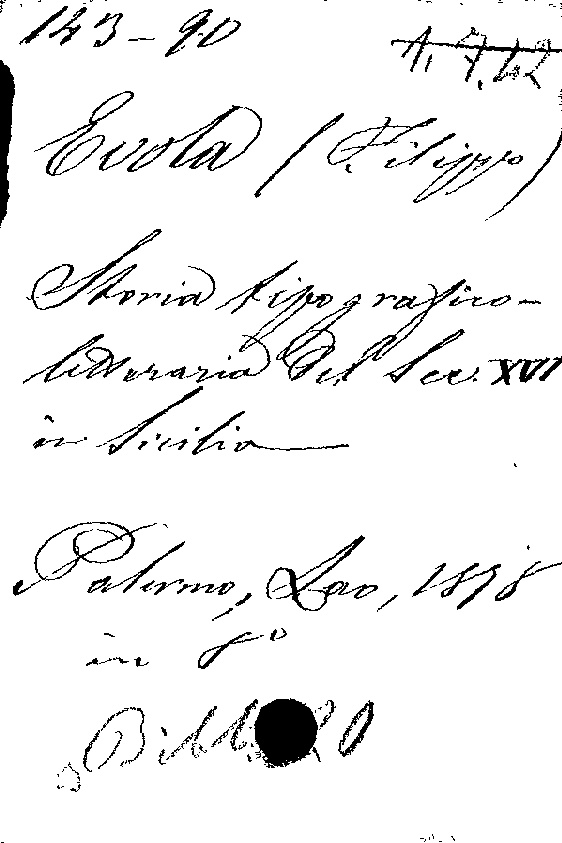 143-90
A. 7.42
Evola (Filippo)
Storia tipografico-
letteraria del Sec. XVI
in Sicilia
Palermo, Lao, 1878
in 8°